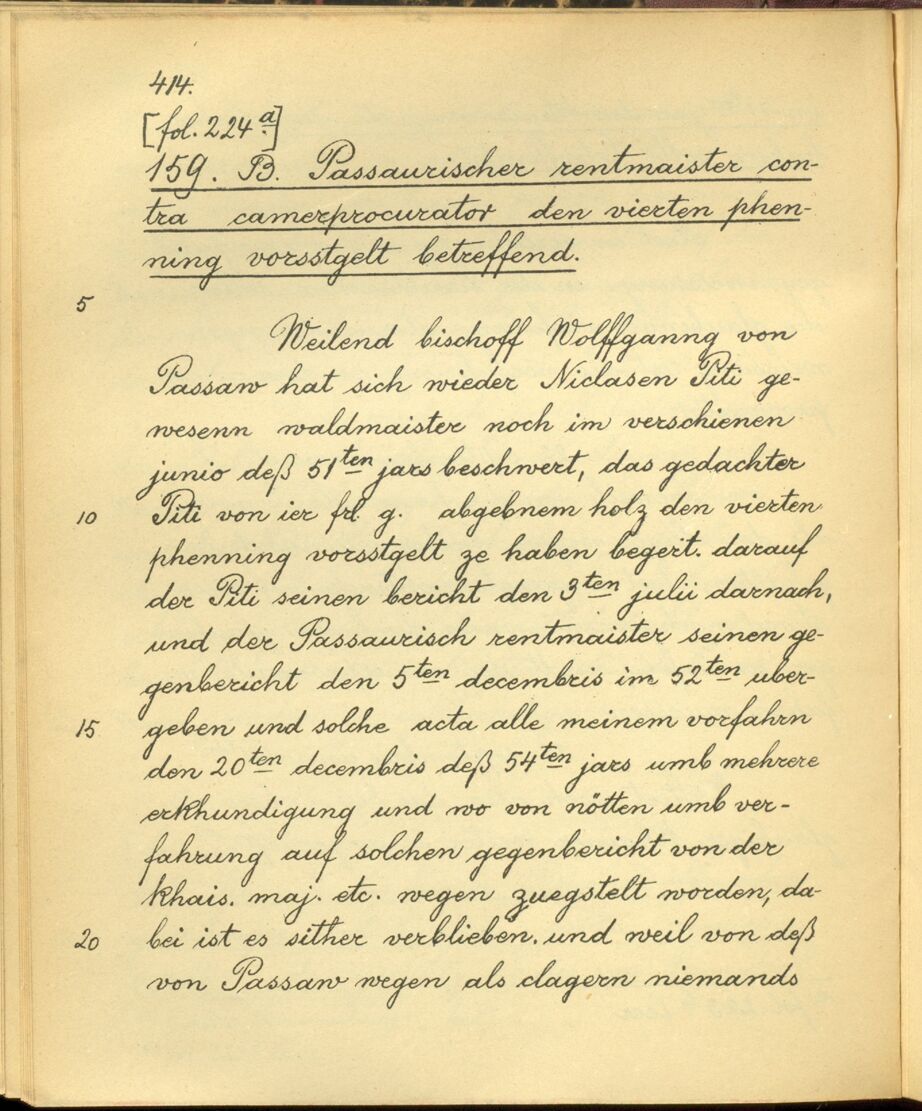 414.
[fol. 224a]
159. B. Passaurischer rentmaister con-
tra camerprocurator den vierten phen-
ning vorsstgelt betreffend.
5
Weilend bischoff Wolffganng von
Passaw hat sich wieder Niclasen Piti ge-
wesenn waldmaister noch im verschienen
junio deß 51ten jars beschwert, das gedachter
10 Piti von ier frl. g. abgebnem holz den vierten
phenning vorsstgelt ze haben begert. darauf
der Piti seinen bericht den 3ten julii darnach,
und der Passaurisch rentmaister seinen ge-
genbericht den 5ten decembris im 52ten uber-
15 geben und solche acta alle meinem vorfahrn
den 20ten decembris deß 54ten jars umb mehrere
erkhundigung und wo von nötten umb ver-
fahrung auf solchen gegenbericht von der
khais. maj. etc. wegen zuegstelt worden, da-
20 bei ist es sither verblieben. und weil von deß
von Passaw wegen als clagern niemands